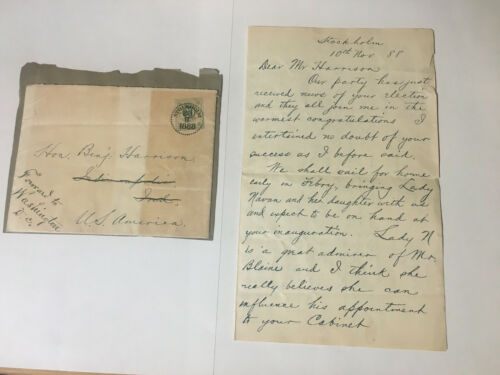 Hon. Benj Harrison
Indianapolis
Ind.
U.S. America.
Forward to
Washington
D.C.
1888
Stockholm
10th Nov 88
Dear Mr Harrison
Our party has just
received news of your election
and they all join me in the
warmest congratulations I
entertained no doubt of your
success as I before said.
We shall sail for home
early in Febry, bringing Lady
Navan and her daughter with us
and expect to be on hand at
your inauguration. Lady N
is a great admirer of Mr.
Blaine and I think she
really believes she can
influence his appointment
to your Cabinet